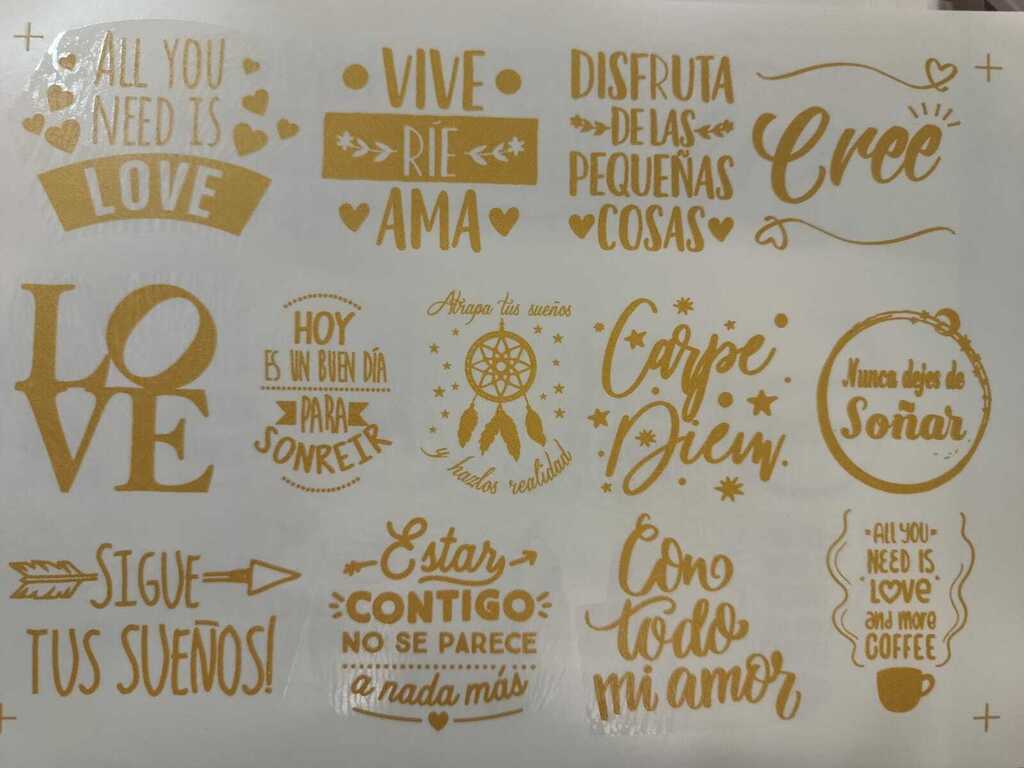 ALL YOU
NEED IS
LOVE
VIVE
RÍE
AMA
DISFRUTA
DE LAS
PEQUEÑAS
COSAS
Cree
LO
VE
HOY
ES UN BUEN DÍA
PARA
SONREIR
Atrapa tús sueños
y hazlos realidad
Carpe
Diem.
Nunca dejes de
Soñar
SIGUE
TUS SUEÑOS!
Estar
CONTIGO
NO SE PARECE
a nada más
Con
todo
mi amor
ALL YOU
NEED IS
LOVE
and more
COFFEE